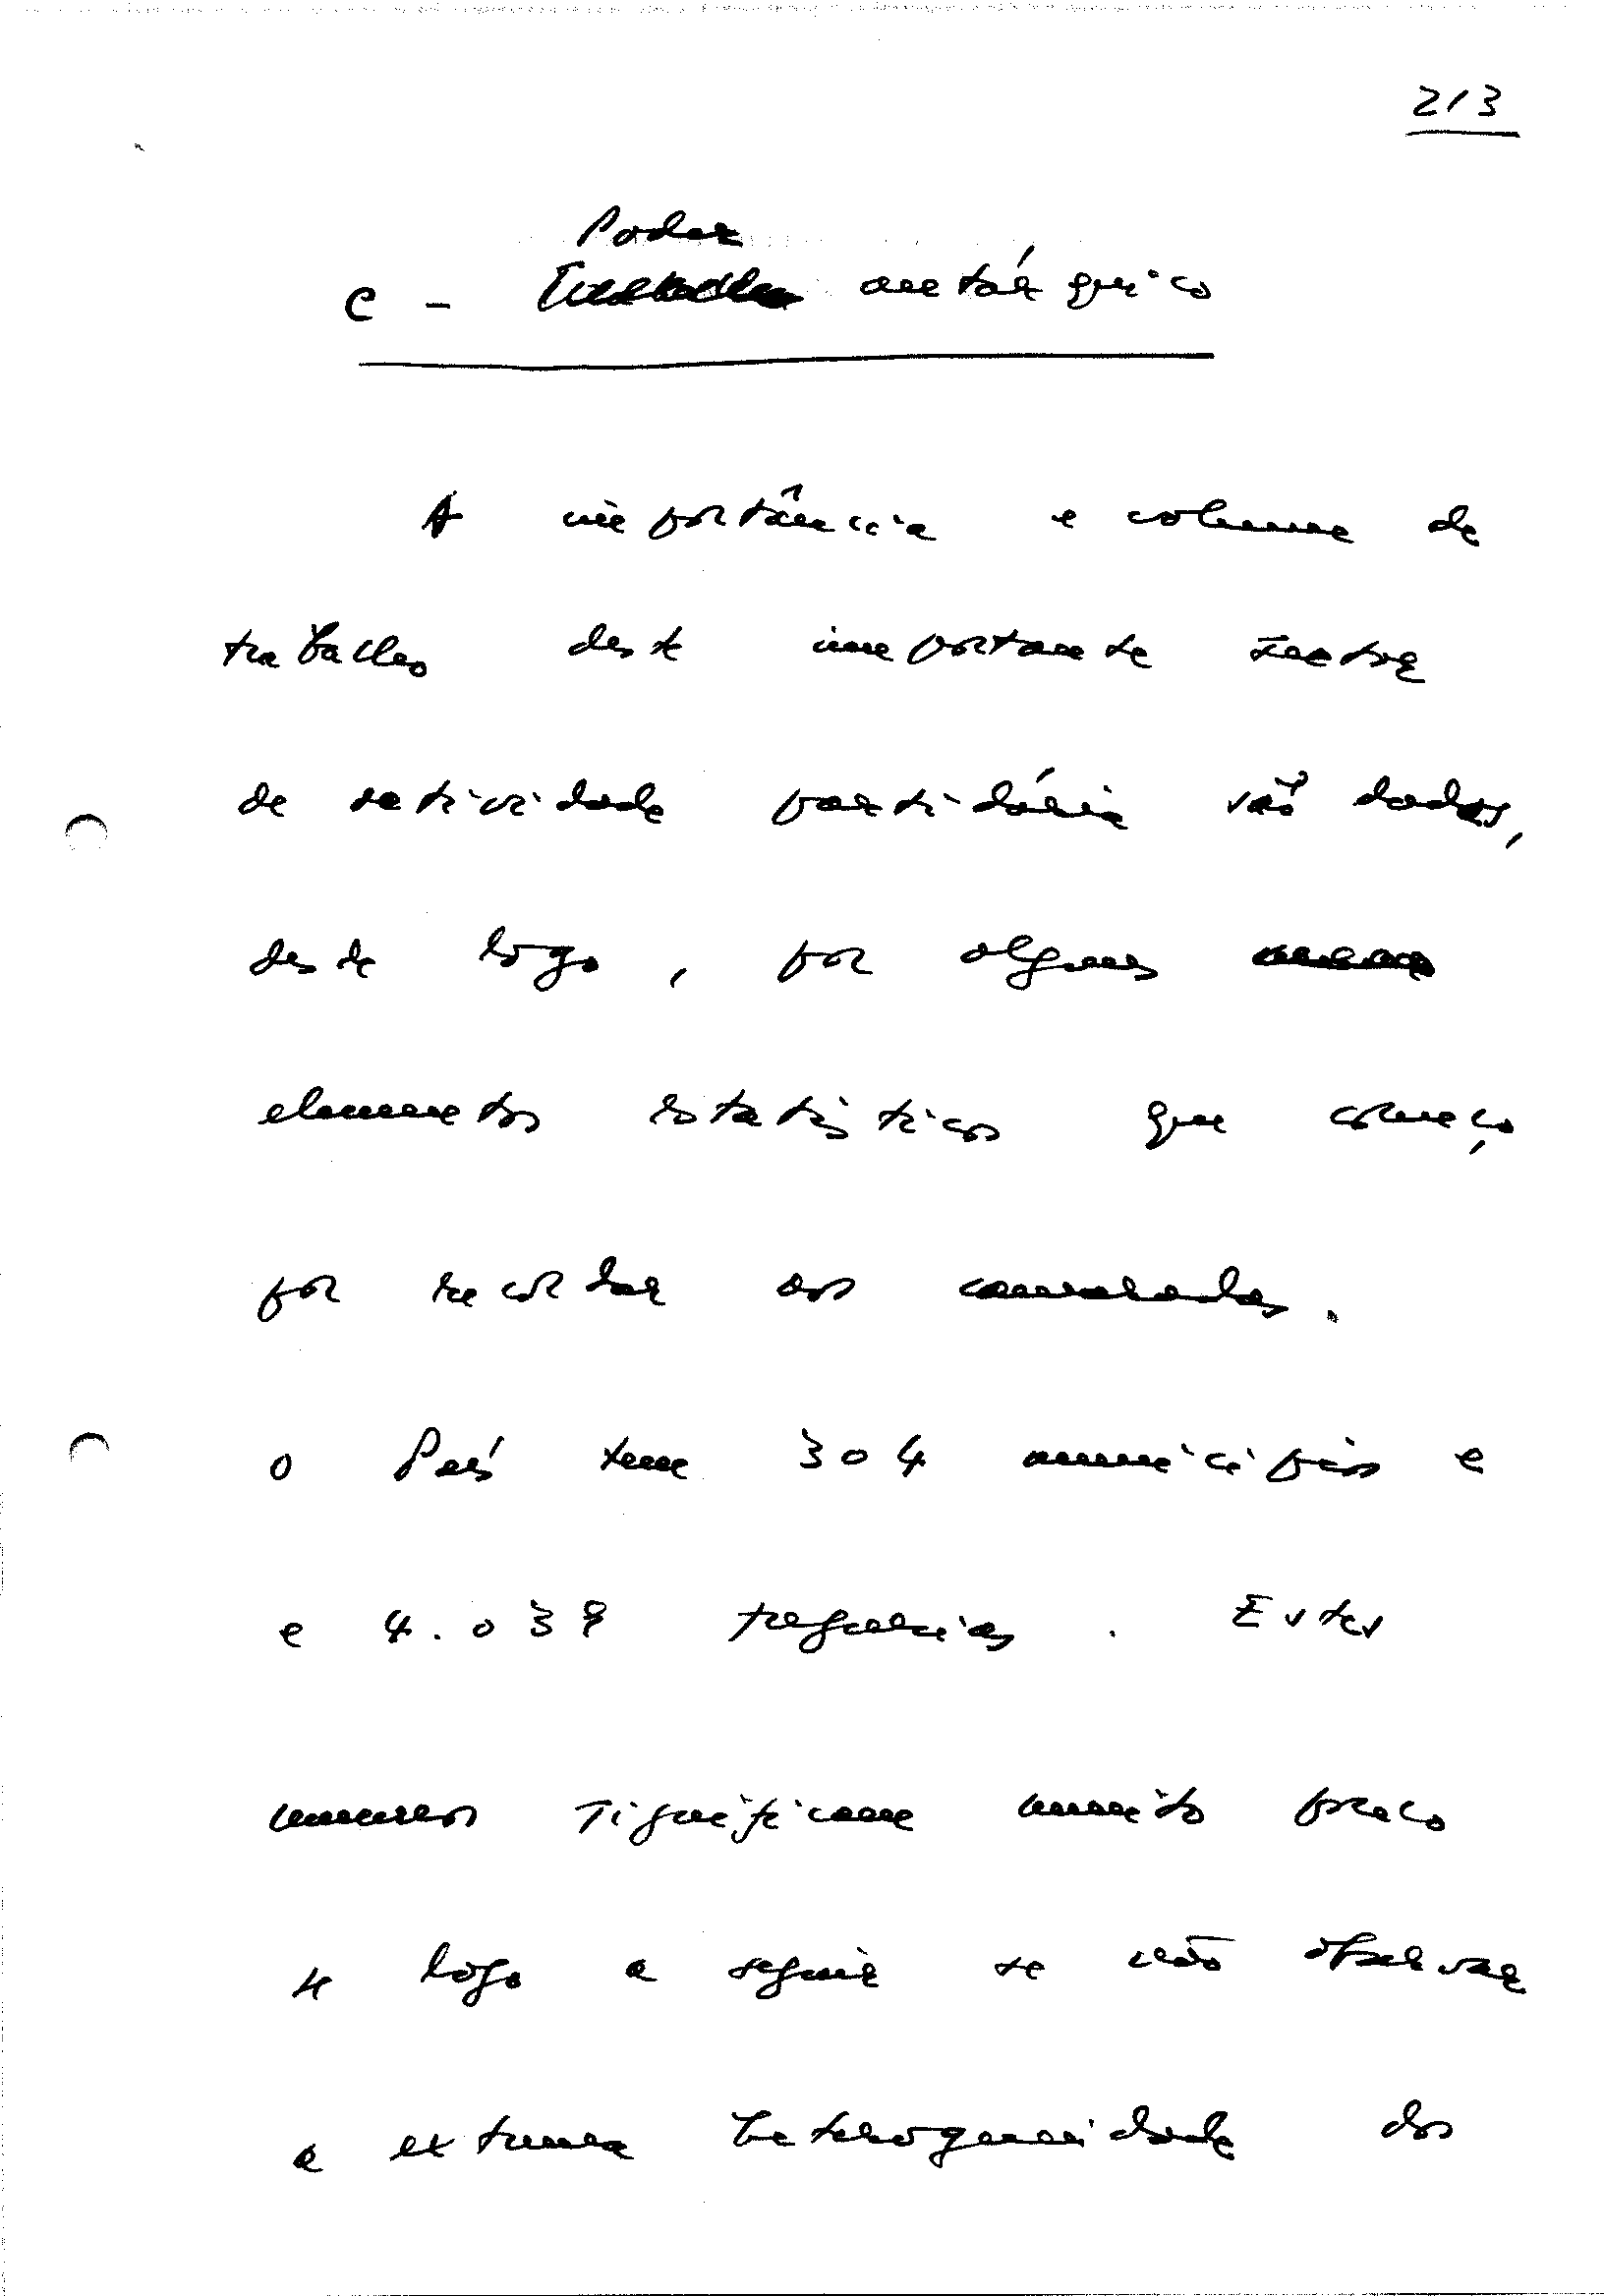 213
Poder
C - autárquico
A importância e volume de
trabalho deste importante sector
de actividade partidária são dados,
desde logo, por alguns
elementos estatísticos que começo
por recordar aos camaradas.
O País tem 304 municípios e
e 4.038 freguesias. Estes
números significam muito pouco
se logo a seguir se não observar
a extrema heterogeneidade dos